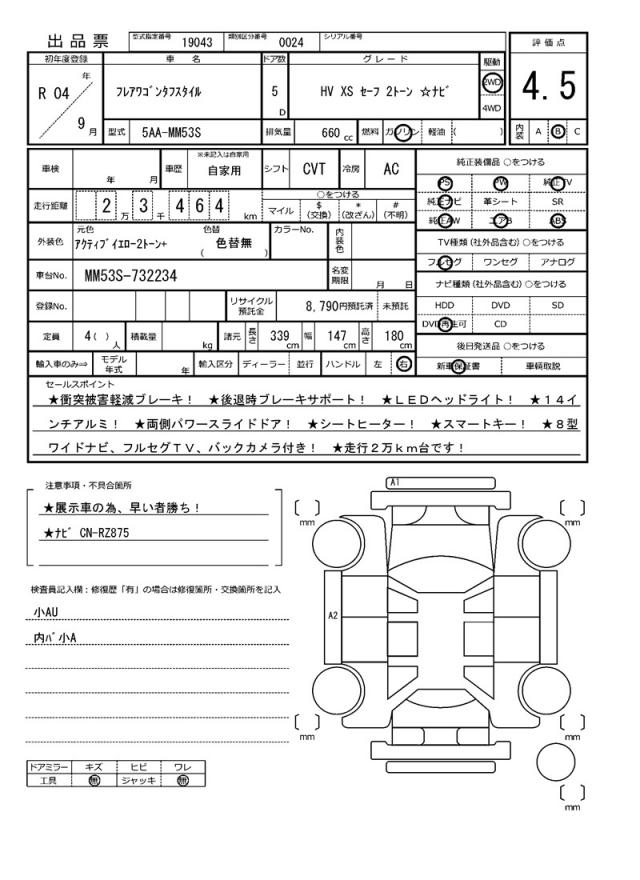 出品票 型式指定番号 19043 類別区分番号 0024 シリアル番号
評価点
初年度登録 車名 ドア数 グレード 駆動
R 04 年 9 月
フレアワゴンタフスタイル 5 D HV XS セーフ 2トーン ☆ナビ 2WD 4WD
4.5
型式 5AA-MM53S 排気量 660 cc 燃料 ガソリン 軽油 ( )
内装 A B C
車検 年 月 車歴 ※未記入は自家用 自家用 シフト CVT 冷房 AC
純正装備品 ○をつける
PS PW 純正TV
走行距離 2 万 3 千 4 6 4 km
○をつける
マイル $ (交換) * (改ざん) # (不明)
純正ナビ 革シート SR
純正AW エアB ABS
外装色 元色 アクティブイエロー2トーン+ 色替 ( 色替無 ) カラーNo. 内装色
TV種類 (社外品含む) ○をつける
フルセグ ワンセグ アナログ
車台No. MM53S-732234 名変期限 月 日
ナビ種類 (社外品含む) ○をつける
登録No. リサイクル預託金 8,790円預託済 未預託
HDD DVD SD
DVD再生可 CD
定員 4( ) 人 積載量 kg 諸元 長さ 339 cm 幅 147 cm 高さ 180 cm
後日発送品 ○をつける
輸入車のみ⇒ モデル年式 年 輸入区分 ディーラー 並行 ハンドル 左 右
新車保証書 車輌取説
セールスポイント
★衝突被害軽減ブレーキ! ★後退時ブレーキサポート! ★LEDヘッドライト! ★14イ
ンチアルミ! ★両側パワースライドドア! ★シートヒーター! ★スマートキー! ★8型
ワイドナビ、フルセグTV、バックカメラ付き! ★走行2万km台です!
注意事項・不具合箇所
★展示車の為、早い者勝ち!
★ナビ CN-RZ875
検査員記入欄:修復歴「有」の場合は修復箇所・交換箇所を記入
小AU
内バ小A
ドアミラー キズ ヒビ ワレ
工具 無 ジャッキ 無
A1
A2
[ ] mm
[ ] mm
[ ] mm
[ ] mm
[ ] mm